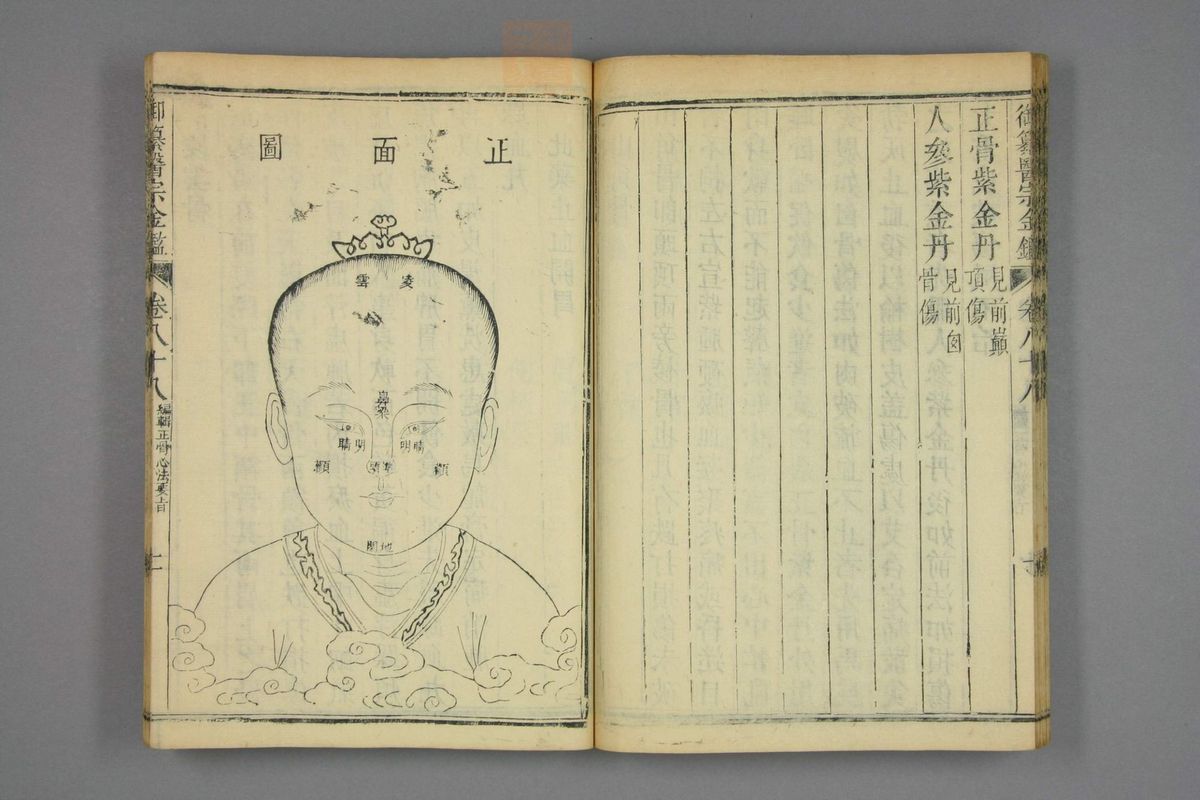 御纂醫宗金鑑 卷八十八
正骨紫金丹 見前巔頂傷
人參紫金丹 見前囟骨傷
正面圖
凌雲
鼻梁
睛明
明睛
顴
顴
地閣
御纂醫宗金鑑 卷八十八 編輯正骨心法要旨